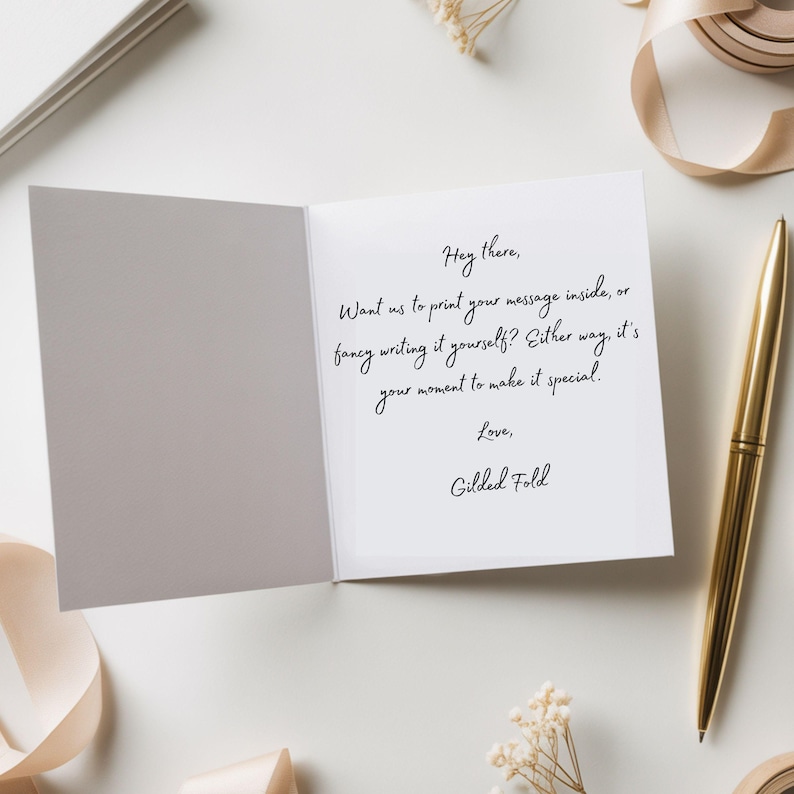 Hey there,
Want us to print your message inside, or
fancy writing it yourself? Either way, it's
your moment to make it special.
Love,
Gilded Fold